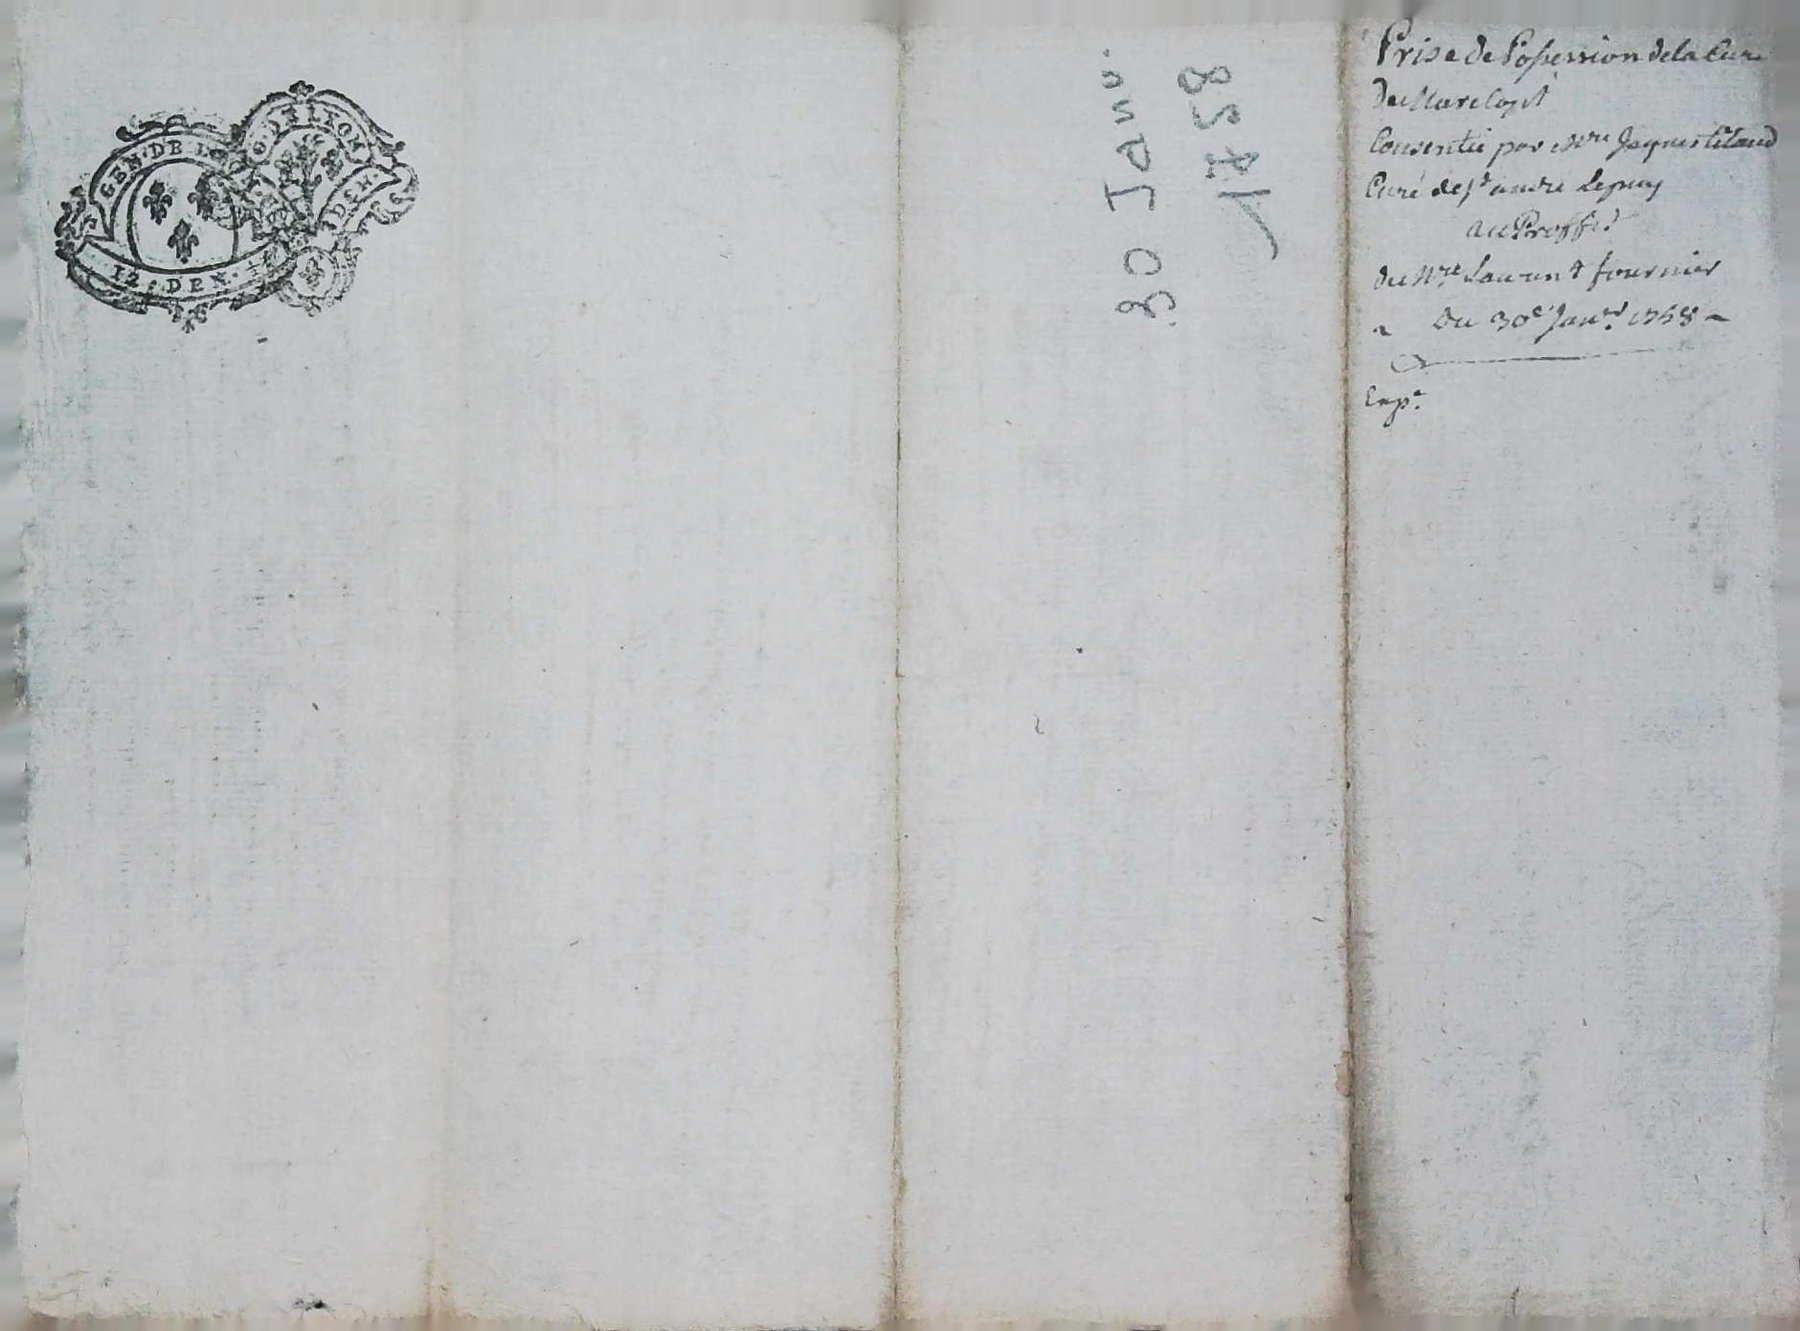 GEN·DE LYON
12·DEN·
G·DE LYON
DEN·
30 Janv.
1758
Prise de Possession de la Cure
De Marclopt
Consentie par Mre Jaques
Curé de st andré Lepuy
au Proffit
de Mre Laurent fournier
Du 30e Janvr 1758
Expe